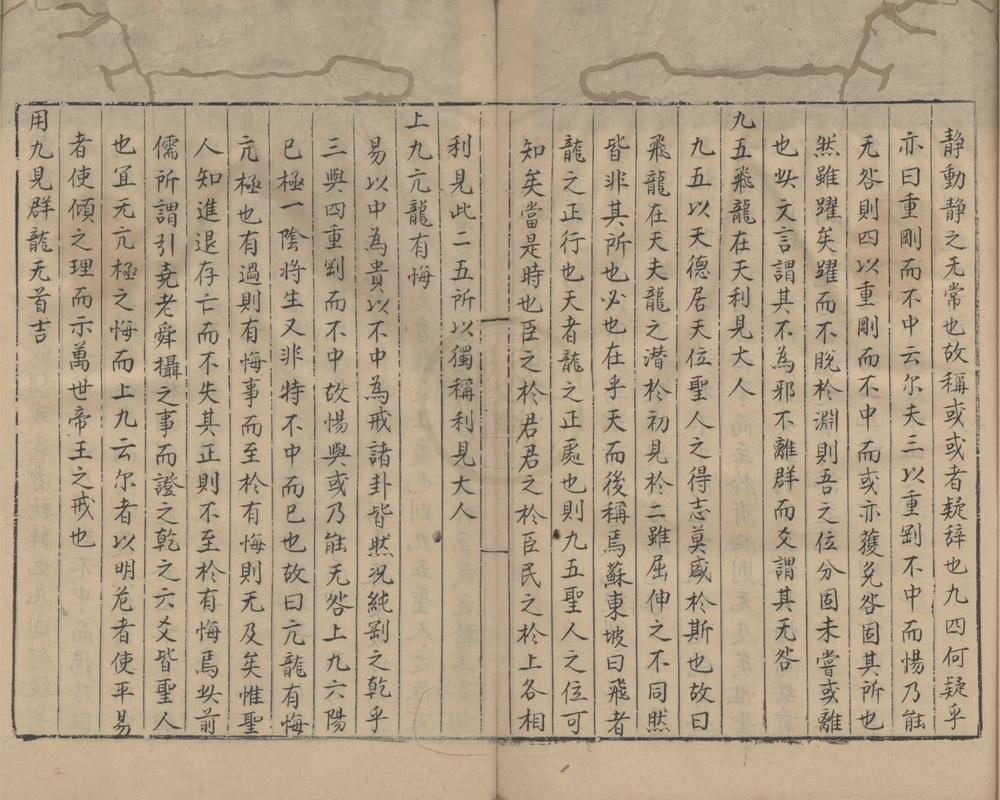 静動静之无常也故稱或或者疑辞也九四何疑乎
亦曰重剛而不中云尔夫三以重剛不中而惕乃能
无咎則四以重剛而不中而或亦獲免咎固其所也
然雖躍矣躍而不脫於淵則吾之位分固未嘗或離
也此文言謂其不為邪不離群而爻謂其无咎
九五飛龍在天利見大人
九五以天德居天位聖人之得志莫盛於斯也故曰
飛龍在天夫龍之潜於初見於二雖屈伸之不同然
皆非其所也必也在乎天而後稱焉蘇東坡曰飛者
龍之正行也天者龍之正處也則九五聖人之位可
知矣當是時也臣之於君君之於臣民之於上各相
利見此二五所以獨稱利見大人
上九亢龍有悔
易以中為貴以不中為戒諸卦皆然况純剛之乾乎
三與四重剛而不中故惕與或乃能无咎上九六陽
已極一陰将生又非特不中而已也故曰亢龍有悔
亢極也有過則有悔事而至於有悔則无及矣惟聖
人知進退存亡而不失其正則不至於有悔焉此前
儒所謂引堯老舜攝之事而證之乾之六爻皆聖人
也宜无亢極之悔而上九云尔者以明危者使平易
者使傾之理而示萬世帝王之戒也
用九見群龍无首吉